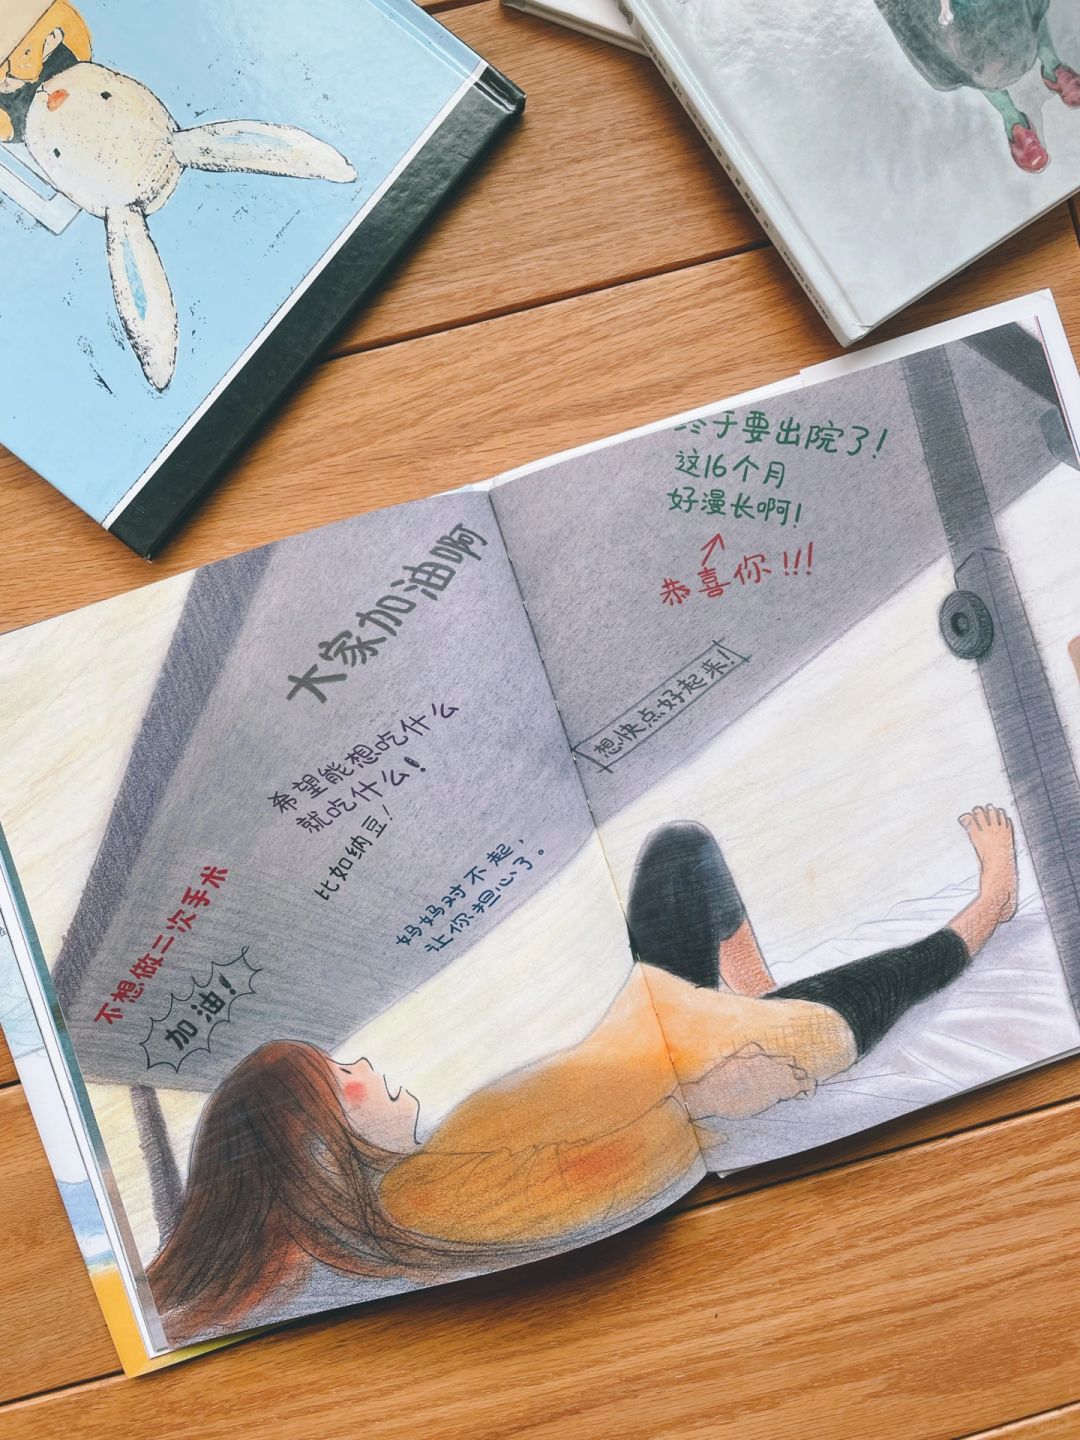 大家加油啊
希望能想吃什么
就吃什么！
比如纳豆！
不想做二次手术
加油！
妈妈对不起，
让你担心了。
终于要出院了！
这16个月
好漫长啊！
恭喜你！！！
想快点好起来！